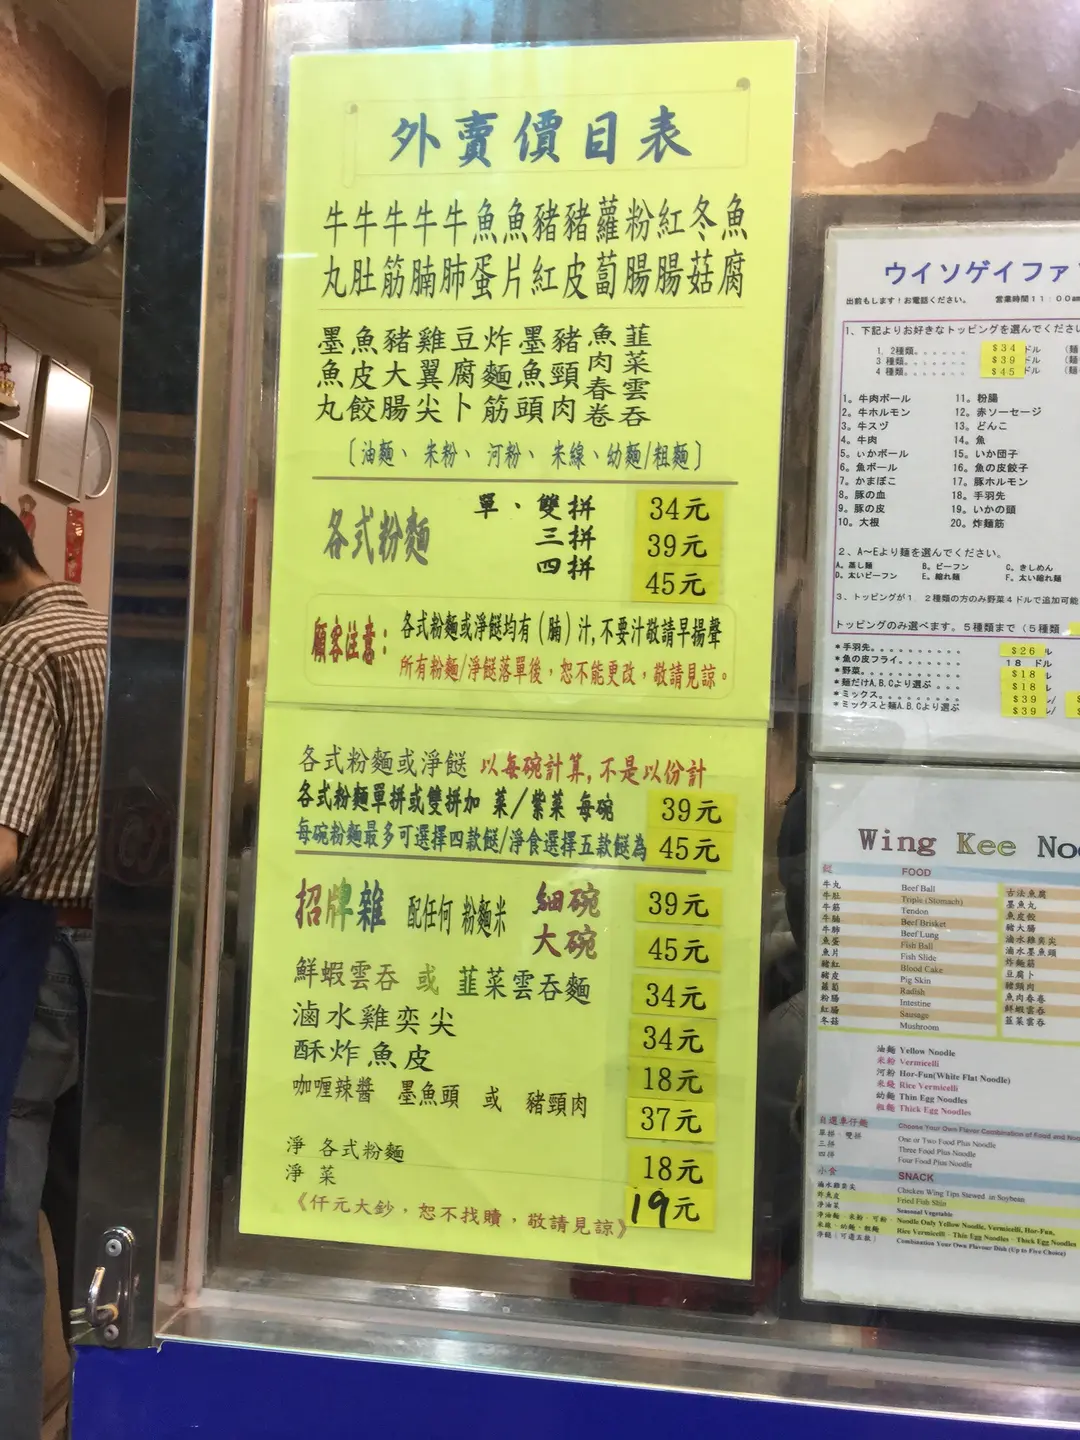 外賣價目表
牛牛牛牛牛魚魚豬豬蘿粉紅冬魚
丸肚筋腩肺蛋片紅皮蔔腸腸菇腐
墨魚豬雞豆炸墨豬魚韮
魚皮大翼腐麵魚頸肉菜
丸餃腸尖卜筋頭肉春雲
卷吞
〔油麵、米粉、河粉、米線、幼麵/粗麵〕
各式粉麵
單、雙拼 34元
三拼 39元
四拼 45元
顧客注意：
各式粉麵或淨餸均有（腩）汁,不要汁敬請早揚聲
所有粉麵/淨餸落單後，恕不能更改，敬請見諒。
各式粉麵或淨餸 以每碗計算,不是以份計
各式粉麵單拼或雙拼加 菜/紫菜 每碗 39元
每碗粉麵最多可選擇四款餸/淨食選擇五款餸為 45元
招牌雜 配任何 粉麵米 細碗 39元
大碗 45元
鮮蝦雲吞 或 韮菜雲吞麵 34元
滷水雞奕尖 34元
酥炸魚皮 18元
咖喱辣醬 墨魚頭 或 豬頸肉 37元
淨 各式粉麵 18元
淨 菜 19元
《仟元大鈔，恕不找贖，敬請見諒》
ウイソゲイファ
出前もします！お電話ください。 営業時間11：00am
1、下記よりお好きなトッピングを選んでください
1. 2種類。 $34 ドル
3 種類。 $39 ドル
4 種類。 $45 ドル
1。牛肉ボール
2。牛ホルモン
3。牛スヅ
4。牛肉
5。いかボール
6。魚ボール
7。かまぼこ
8。豚の血
9。豚の皮
10。大根
11。粉腸
12。赤ソーセージ
13。どんこ
14。魚
15。いか団子
16。魚の皮餃子
17。豚ホルモン
18。手羽先
19。いかの頭
20。炸麺筋
2、A～Eより麺を選んでください。
A。蒸し麺 B。ビーフン C。きしめん
D。太いビーフン E。縮れ麺 F。太い縮れ麺
3、トッピングが1 2種類の方のみ野菜4ドルで追加可能
トッピングのみ選べます。5種類まで（5種類
*手羽先。 $26 ル
*魚の皮フライ。 18 ドル
*野菜。 $18
*麺だけA.B.Cより選ぶ $18
*ミックス。 $39
*ミックスと麺A.B.Cより選ぶ $39
Wing Kee Noo
FOOD
牛丸 Beef Ball
牛肚 Triple (Stomach)
牛筋 Tendon
牛腩 Beef Brisket
牛肺 Beef Lung
魚蛋 Fish Ball
魚片 Fish Slide
豬紅 Blood Cake
豬皮 Pig Skin
蘿蔔 Radish
粉腸 Intestine
紅腸 Sausage
冬菇 Mushroom
古法魚腐
墨魚丸
魚皮餃
豬大腸
滷水雞奕尖
滷水墨魚頭
炸麵筋
豆腐卜
豬頸肉
魚肉春卷
鮮蝦雲吞
韮菜雲吞
油麵 Yellow Noodle
米粉 Vermicelli
河粉 Hor-Fun(White Flat Noodle)
米線 Rice Vermicelli
幼麵 Thin Egg Noodles
粗麵 Thick Egg Noodles
自選車仔麵 Choose Your Own Flavor Combination of Food and Noo
單拼、雙拼 One or Two Food Plus Noodle
三拼 Three Food Plus Noodle
四拼 Four Food Plus Noodle
小食 SNACK
滷水雞奕尖 Chicken Wing Tips Stewed in Soybean
炸魚皮 Fried Fish Skin
淨油菜 Seasonal Vegetable
淨油麵、米粉、河粉、 Noodle Only Yellow Noodle, Vermicelli, Hor-Fun,
米線、幼麵、粗麵 Rice Vermicelli、Thin Egg Noodles、Thick Egg Noodles
淨餸（可選五款） Combination Your Own Flavour Dish (Up to Five Choice)